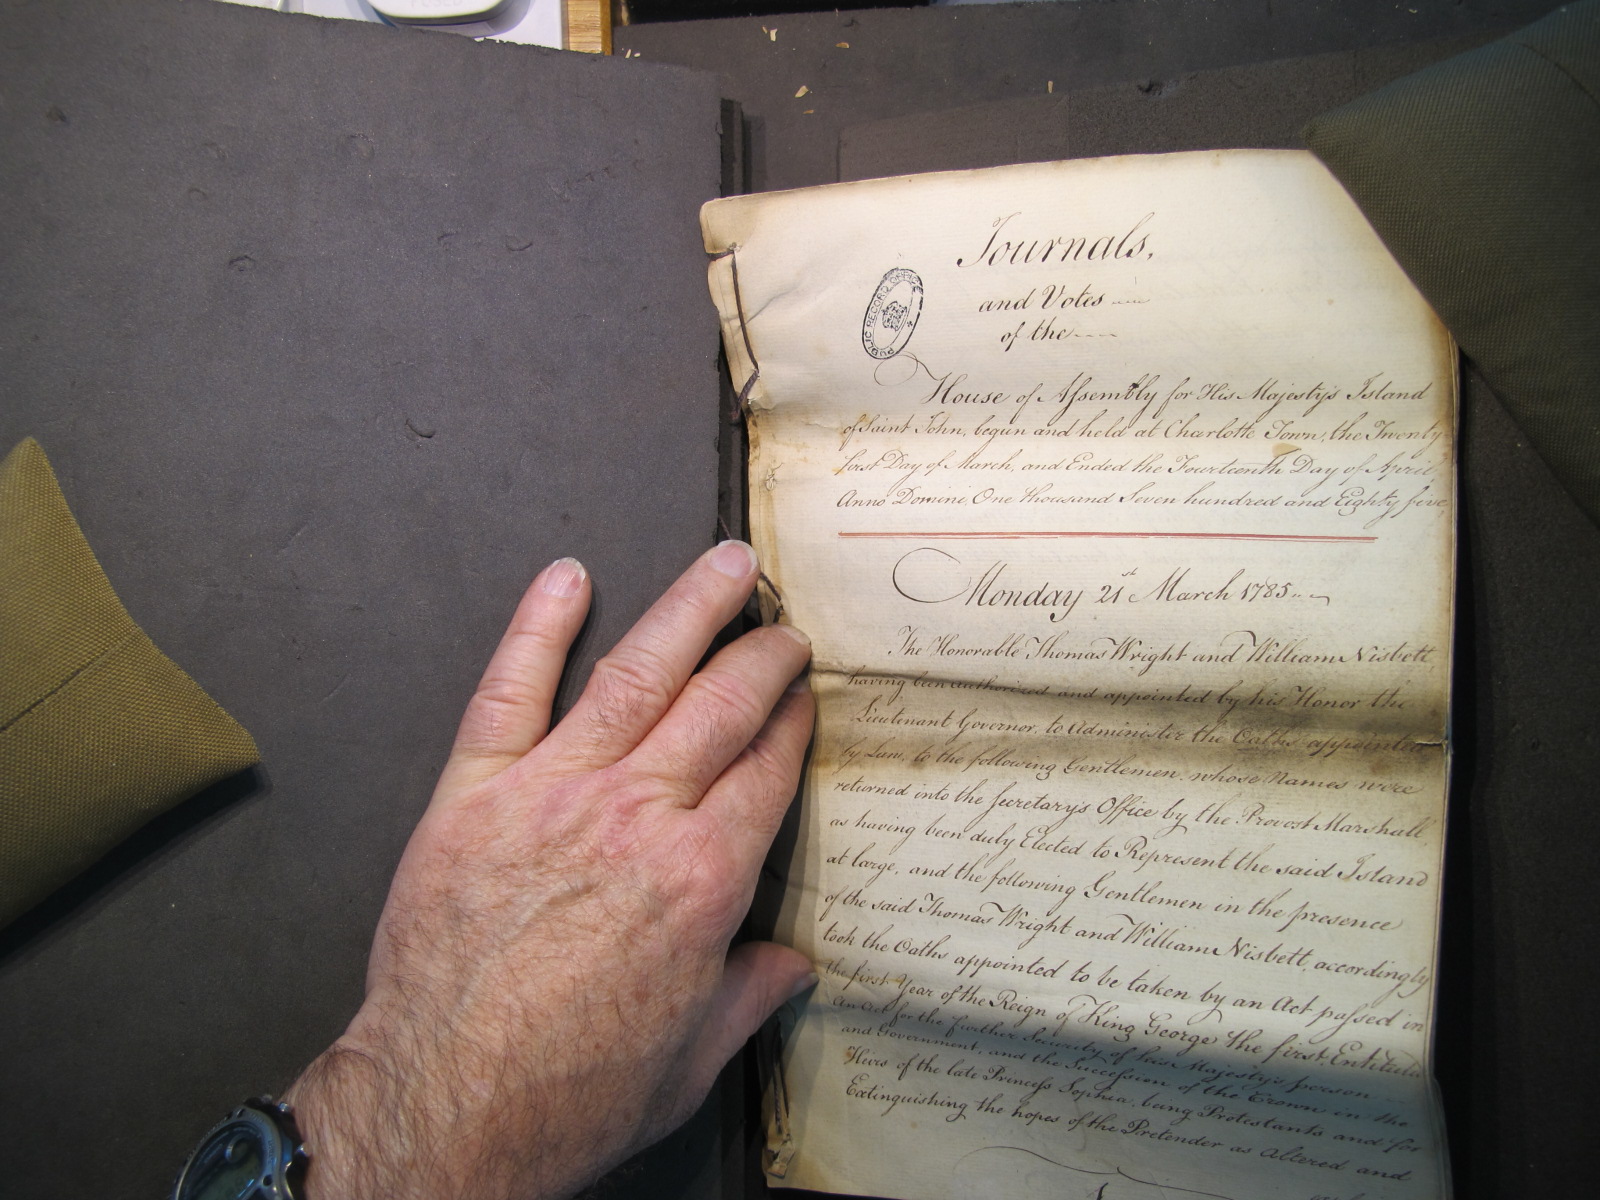 Journals,
and Votes
of the
PUBLIC RECORD OFFICE
House of Assembly for His Majesty's Island
of Saint John, begun and held at Charlotte Town, the Twenty
first Day of March, and Ended the Fourteenth Day of April
Anno Domini, One thousand Seven hundred and Eighty five,
Monday 21st March 1785
The Honorable Thomas Wright and William Nisbett,
having been authorized and appointed by his Honor the
Lieutenant Governor, to Administer the Oaths appointed
by Law, to the following Gentlemen, whose Names were
returned into the Secretary's Office by the Provost Marshall
as having been duly Elected to Represent the said Island
at large, and the following Gentlemen in the presence
of the said Thomas Wright and William Nisbett, accordingly
took the Oaths appointed to be taken by an Act passed in
the first Year of the Reign of King George the first, Entituled
An Act for the further Security of his Majesty's person
and Government, and the Succession of the Crown in the
Heirs of the late Princess Sophia, being Protestants and for
Extinguishing the hopes of the Pretender as Altered and